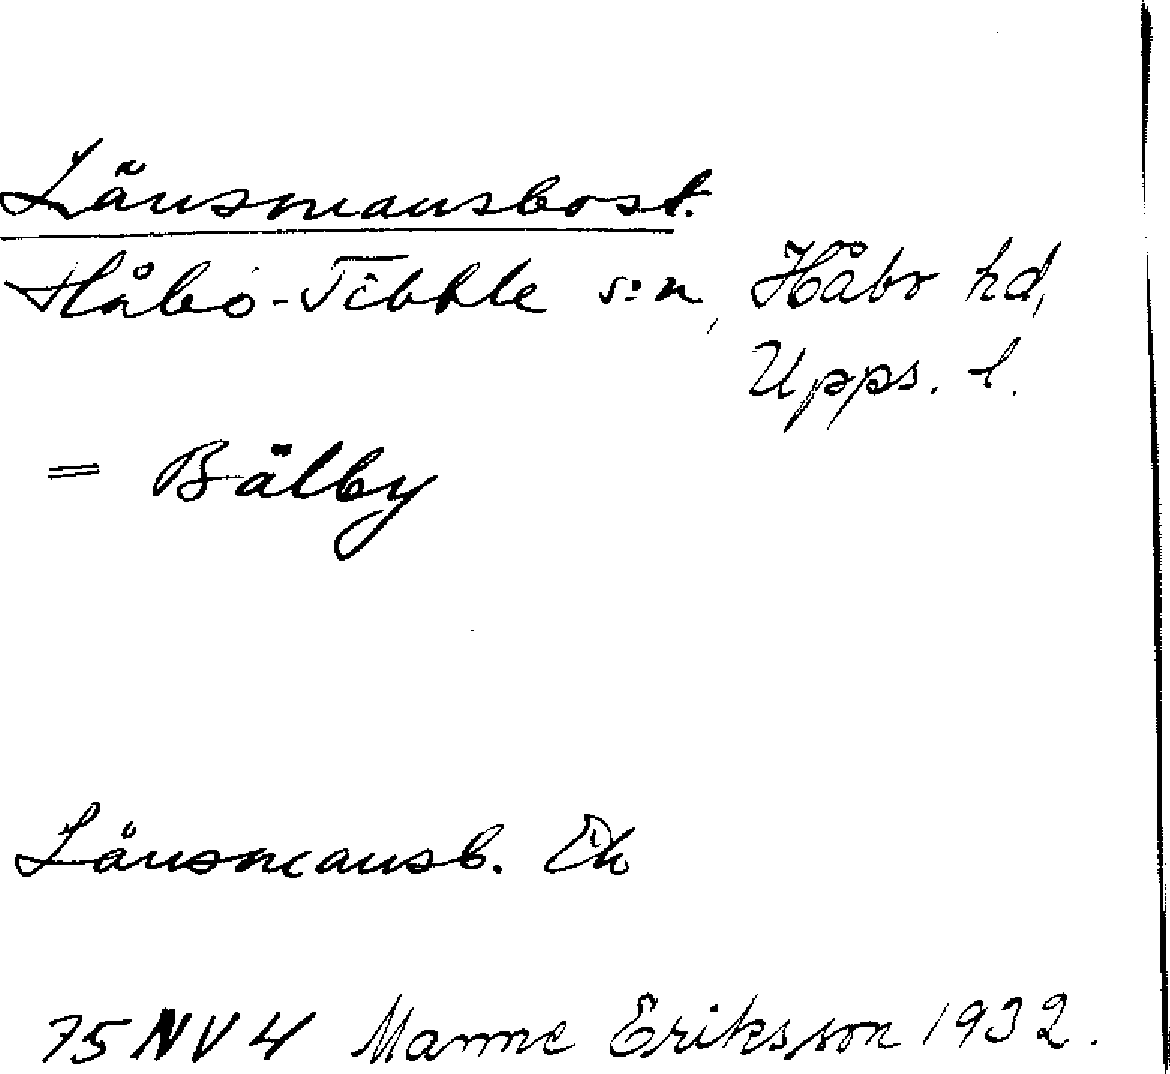 Länsmansbost.
Håbo-Tibble s:n, Håbo hd,
Upps. l.
= Bälby
Länsmansb. Ek
75 NV 4 Manne Eriksson 1932.